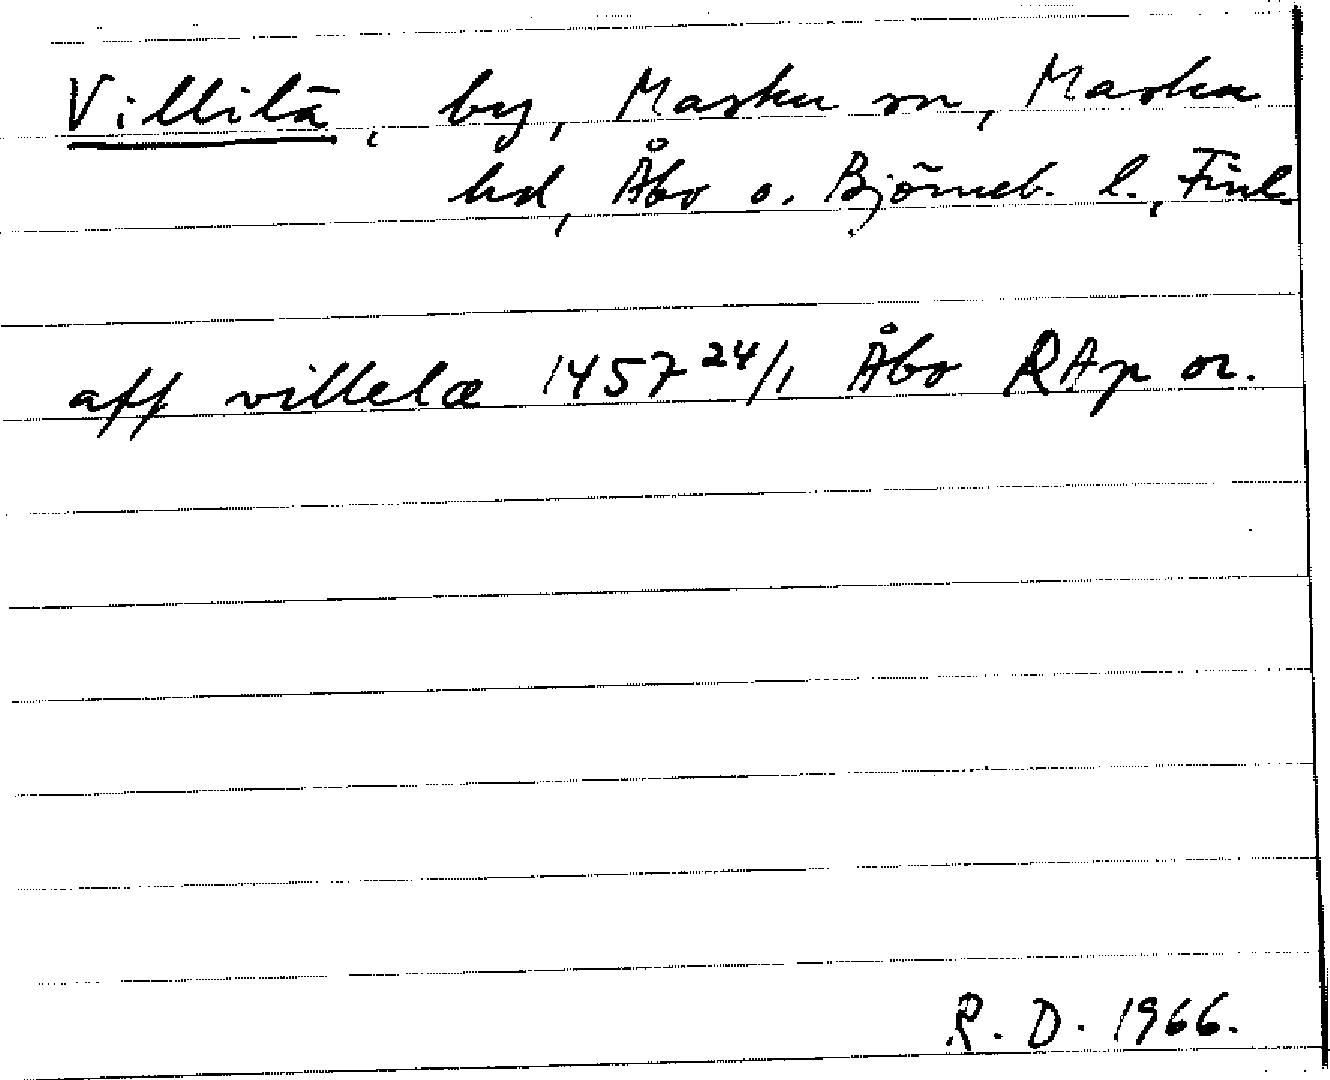 Villilä, by, Masku sn, Masku
hd, Åbo o. Björneb. l., Finl.
aff villelæ 1457 24/1 Åbo RAp or.
R. D. 1966.